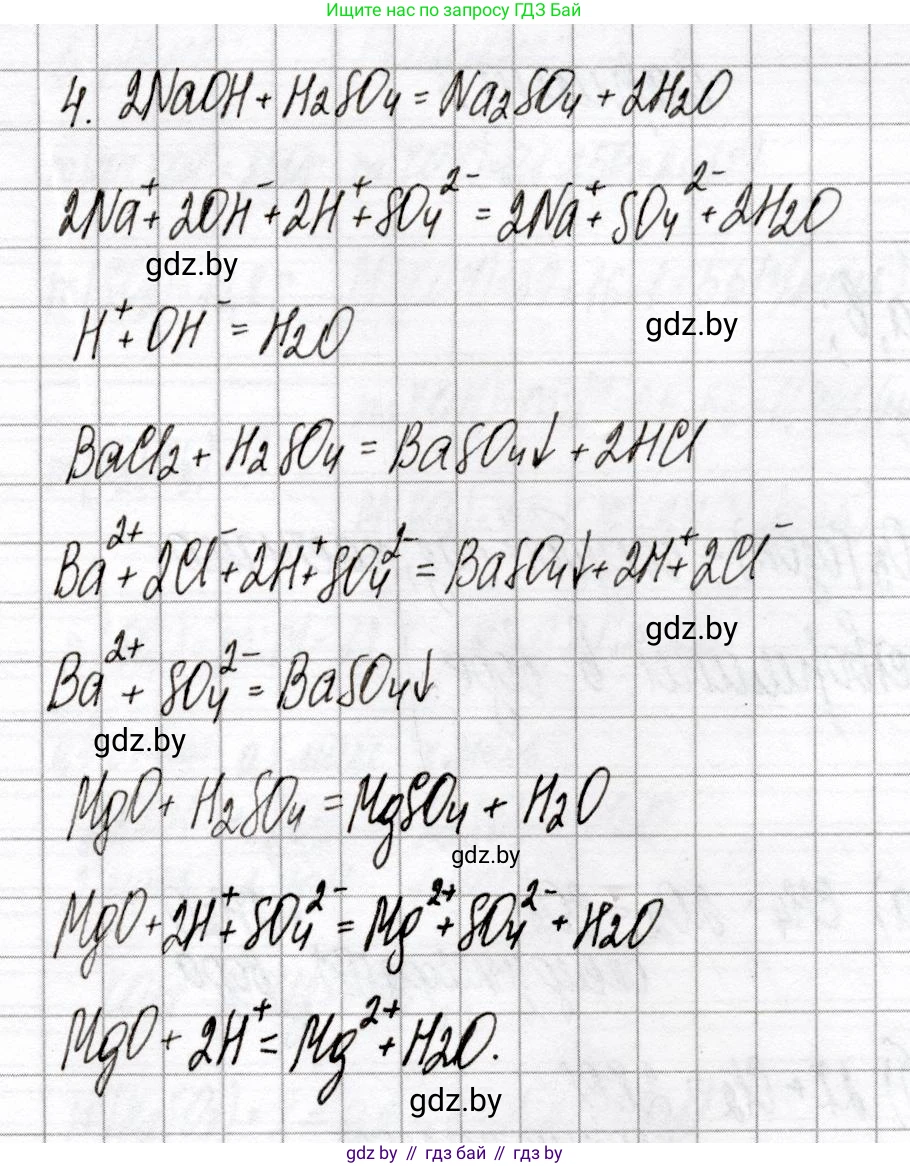 Ищите нас по запросу ГДЗ Бай
4. 2NaOH + H₂SO₄ = Na₂SO₄ + 2H₂O
2Na⁺ + 2OH⁻ + 2H⁺ + SO₄²⁻ = 2Na⁺ + SO₄²⁻ + 2H₂O
gdz.by
H⁺ + OH⁻ = H₂O
gdz.by
BaCl₂ + H₂SO₄ = BaSO₄↓ + 2HCl
Ba²⁺ + 2Cl⁻ + 2H⁺ + SO₄²⁻ = BaSO₄↓ + 2H⁺ + 2Cl⁻
gdz.by
Ba²⁺ + SO₄²⁻ = BaSO₄↓
gdz.by
MgO + H₂SO₄ = MgSO₄ + H₂O
gdz.by
MgO + 2H⁺ + SO₄²⁻ = Mg²⁺ + SO₄²⁻ + H₂O
MgO + 2H⁺ = Mg²⁺ + H₂O.
gdz.by
gdz.by // гдз бай // гдз by